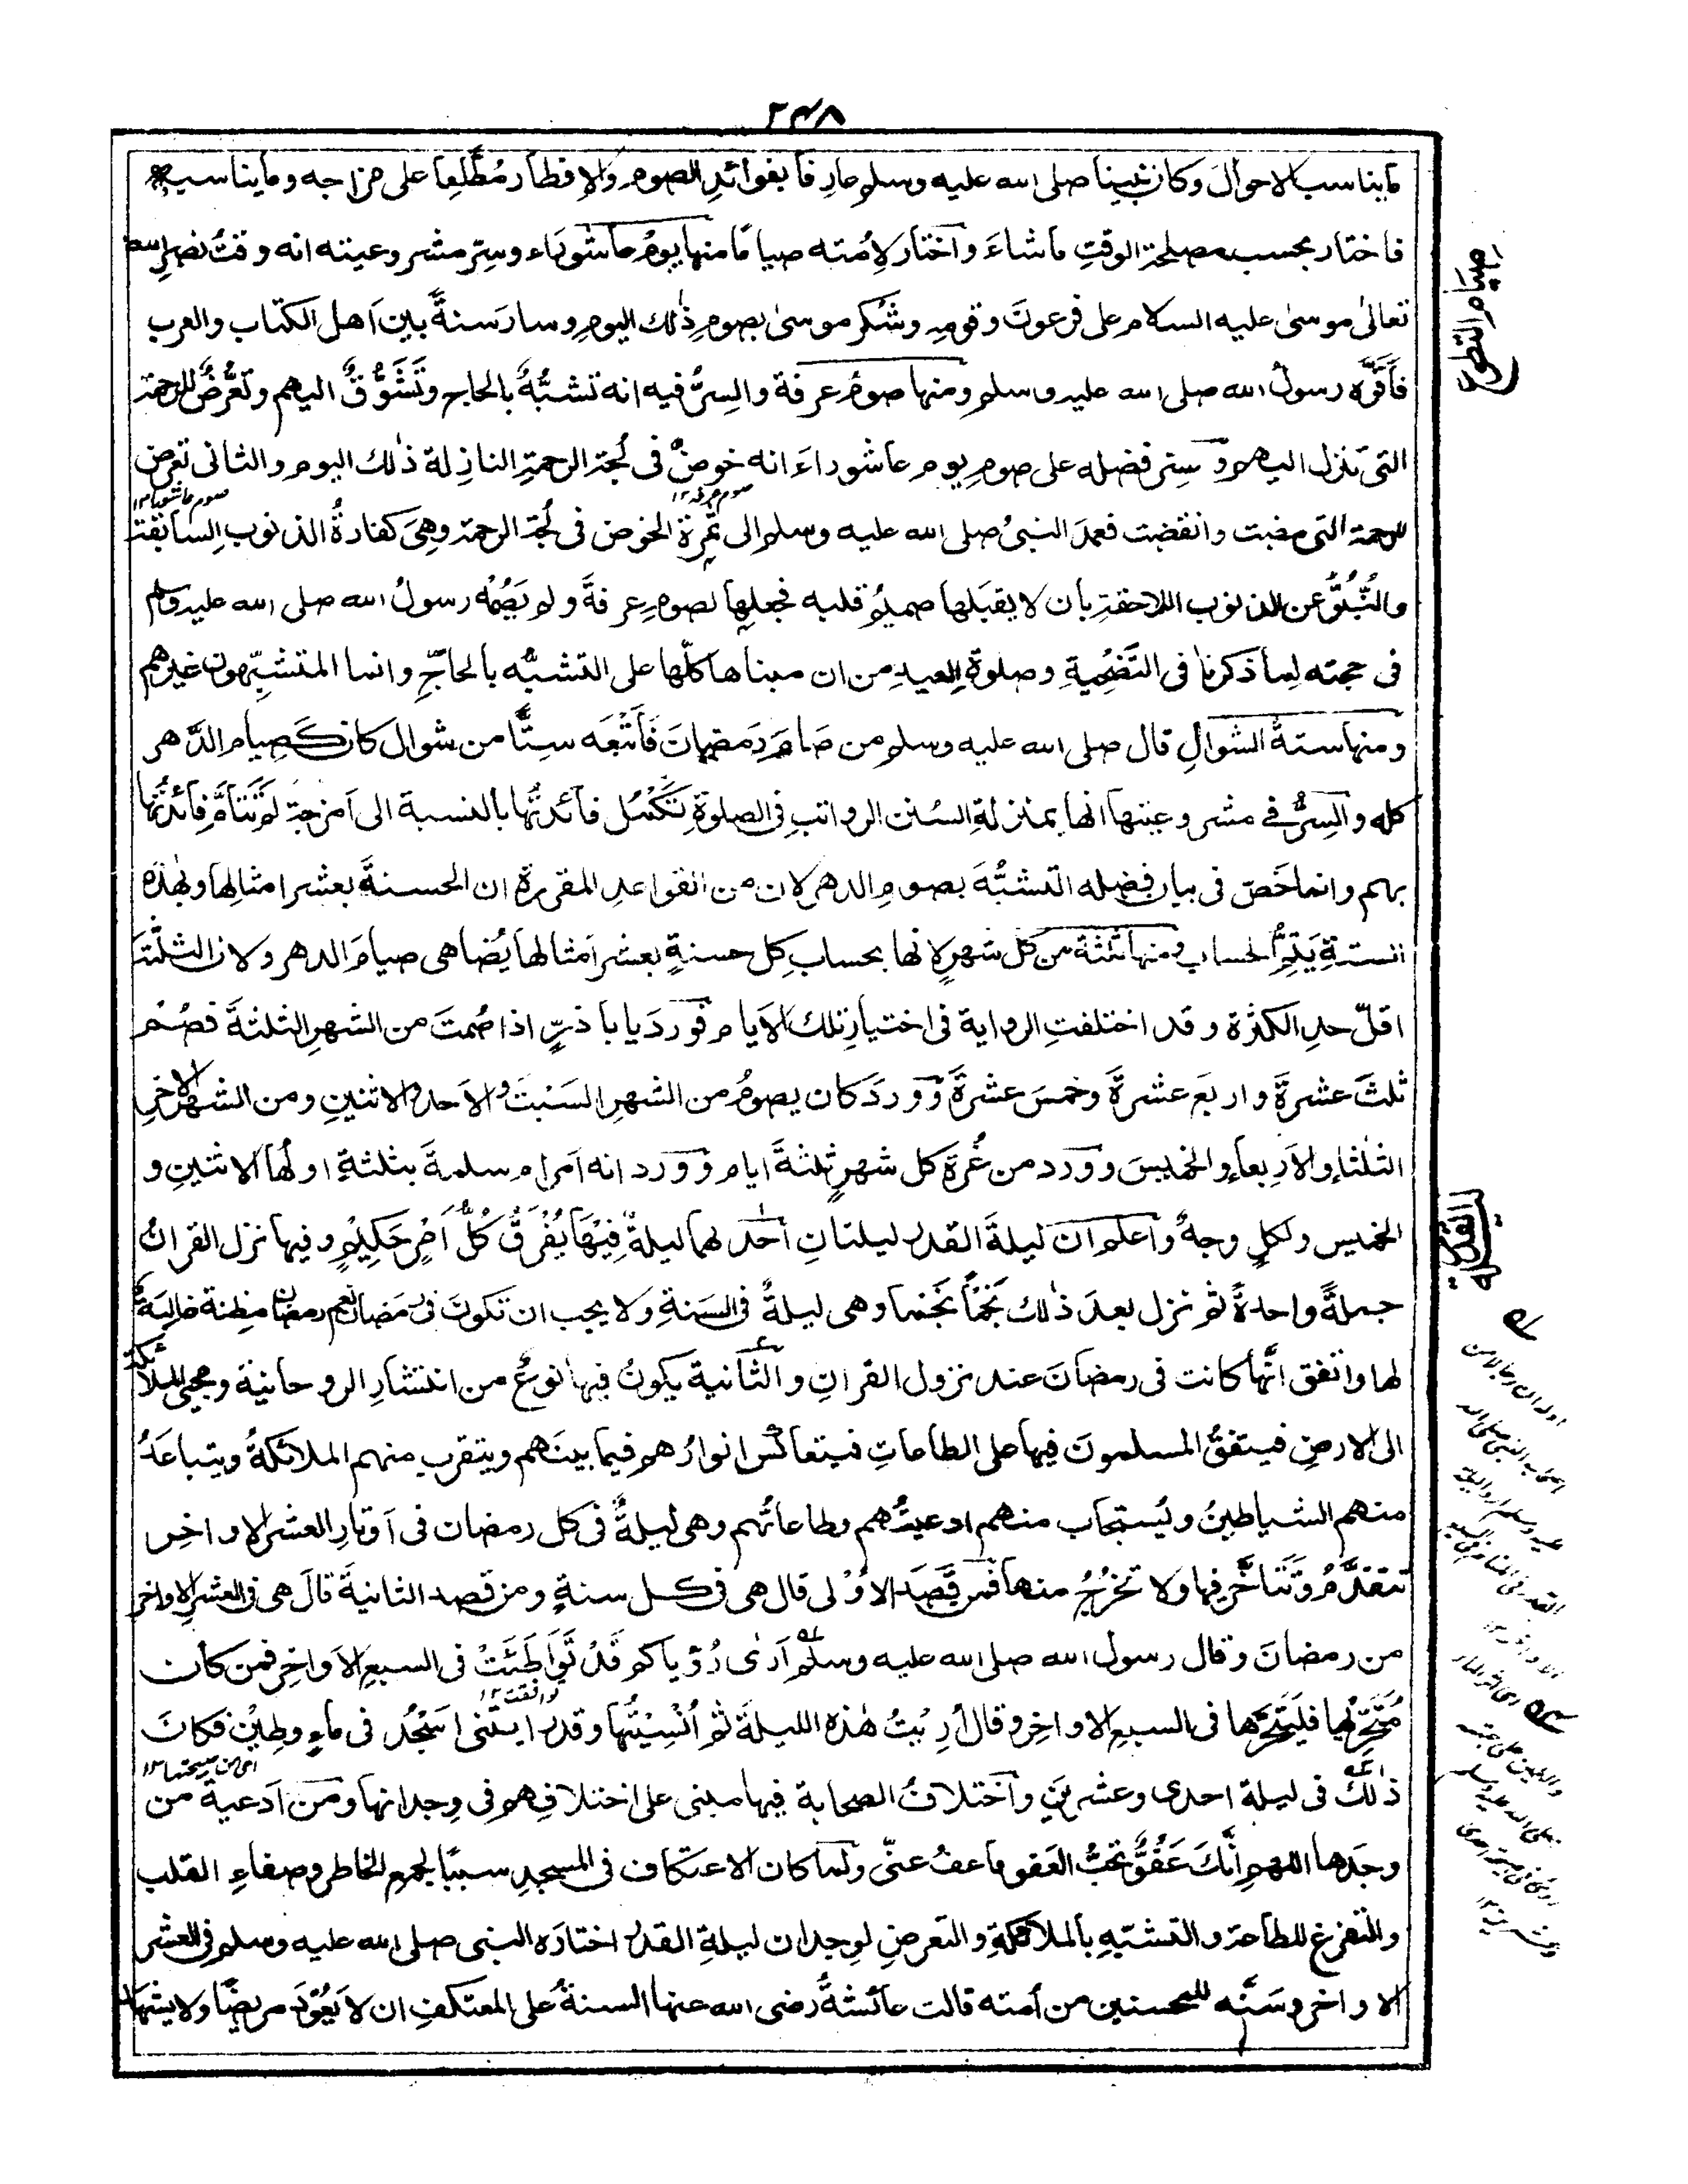 ٢٤٨
مايناسب الاحوالَ وكان نبيُنا صلى الله عليه وسلم عارفا بفوائدِ الصومِ والافطار مُطَّلِعا على مزاجه وما يناسبه
فاختار بحسب مصلحة الوقتِ ما شاءَ واختار لاُمته صياما منها يومُ عاشوراء وسِرّ مشروعيته انه وقتُ نصرِ الله
تعالىٰ موسىٰ عليه السلام على فرعونَ وقومِه وشكر موسىٰ بصومِ ذٰلك اليومِ وصار سنةً بين اَهل الكتاب والعرب
فاَقَرَّه رسولُ الله صلى الله عليه وسلم ومنها صومُ عرفة والسِرُّ فيه انه تشبُّهٌ بالحاج وتَشَوُّقٌ اليهم وتعرُّضٌ للرحمة
التى تنزل اليهم وسِرّ فضله على صومِ يوم عاشوراءَ انه خوضٌ فى لُجة الرحمةِ النازلة ذٰلك اليوم والثانى تعرض
صوم عرفة ١٢ صوم عاشوراء ١٢
للرحمة التى مضت وانقضت فعمدَ النبىُ صلى الله عليه وسلم الى ثمرة الخوض فى لُجة الرحمة وهِىَ كفارةُ الذنوب السابقة
والنُّبُوُّ عن الذنوب اللاحقة بان لا يقبَلها صميمُ قلبه فجعلها لصومِ عرفةَ ولم يَصُمْه رسولُ الله صلى الله عليه وسلم
فى حجته لِما ذكرنا فى التَّضْحِيةِ وصلوةِ العيدِ من ان مبناها كلّها على التشبُّه بالحاجّ وانما المتشبِّهون غيرهم
ومنها ستةُ الشوالِ قال صلى الله عليه وسلم من صَامَ رَمَضانَ فَاَتْبَعَه سِتًّا من شوال كان كصِيام الدَّهر
كله والسِرُّ فى مشروعيتها انها بمنزلة السُنن الرواتبِ فى الصلوةِ تكَمِّل فائدتُها بالنسبة الى اَمزجة لم تَتامَّ فائدتُها
بهم وانما خَصّ فى بيان فضله التشبُّهَ بصوم الدهر لان من القواعد المقررة ان الحسنةَ بعشر امثالها وبهٰذه
الستةِ يَتِمُّ الحساب ومنها ثلٰثة من كل شهرٍ لانها بحساب كل حسنةٍ بعشر اَمثالها يُضاهى صيامَ الدهر ولان الثلٰثة
اقلّ حد الكثرة وقد اختلفتِ الرواية فى اختيار تلك الاَيام فوردَ يا با ذرٍّ اذا صُمتَ من الشهر الثلٰثةَ فصُم
ثلٰثَ عشرةَ واربعَ عشرةَ وخمسَ عشرةَ ووردَ كان يصومُ من الشهرِ السَبْتَ والاَحد والاثنينِ ومن الشهرِ الاٰخرِ
الثلٰثاء والاَربعاء والخميسَ وورد من غُرة كل شهرٍ ثلٰثةَ ايام وورد انه اَمر ام سلمةَ بثلثةٍ اولُها الاثنينِ و
الخميس ولكلٍ وجهٌ واعلم ان ليلةَ القدر ليلتانِ اُحدٰهما ليلةٌ فِيْهَا يُفْرَقُ كُلُّ اَمْرٍ حَكِيْمٍ وفيها نزل القراٰنُ
جملةً واحدةً ثم نزل بعدَ ذٰلك نَجْمًا نَجْمًا وهى ليلةٌ فى السَنةِ ولا يجب ان تكونَ فى رمضان نعم رمضان مظنة غالبةٌ
لها واتفق انَّها كانت فى رمضانَ عند نزول القراٰنِ والثانية يكونُ فيها نوعٌ من انتشارِ الروحانية ومجئ الملائكة
الى الارضِ فيتفقُ المسلمونَ فيها على الطاعاتِ فيتعاكس انوارُهم فيما بينَهم ويتقرب منهم الملائكةُ ويتباعَدُ
منهم الشياطينُ ويُستجاب منهم ادعيتُهم وطاعاتُهم وهى ليلةٌ فى كل رمضان فى اَوتارِ العشر الاواخِر
تتقدَّمُ وتَتَاَخَّر فيها ولا تخرُجُ منها فمن قَصَدَ الاُوْلى قال هى فى كل سنةٍ ومن قصد الثانيةَ قالَ هى فى العشر الاواخر
من رمضانَ وقال رسول الله صلى الله عليه وسلم اَرٰى رُؤْياكم قَدْ تَوَاطَئَتْ فى السبعِ الاَواخِر فمن كان
وافقت ١٢
مُتَحَرِّيَها فليَتَحَرَّها فى السبع الاواخِر وقال اُرِيْتُ هٰذه الليلةَ ثم اُنْسِيْتُها وقد رايتُنى اَسْجُدُ فى ماءٍ وطِيْنٍ فكانَ
ذٰلك فى ليلة احدى وعشرينَ واختلافُ الصحابة فيها مبنى على اختلافِهم فى وِجدانها ومن اَدعية من
وجَدَها اللهم اِنَّكَ عَفُوٌّ تحبُّ العَفو فاعفُ عنّى ولما كان الاعتكاف فى المسجدِ سببًا لجمع الخاطر وصفاءِ القلب
والتفرغ للطاعة والتشبّهِ بالملائكةِ والتعرضِ لوِجدان ليلةِ القدر اختارَه النبى صلى الله عليه وسلم فى العشر
الاواخر وسَنَّه للمحسنين من اُمته قالت عائشةُ رضى الله عنها السنةُ على المعتكفِ ان لا يَعُوْدَ مريضًا ولا يشهد
صيام التطوع
ليلة القدر